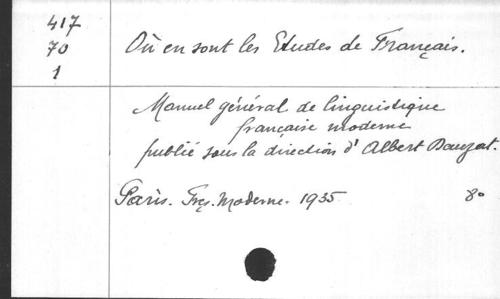 417
70
1
Où en sont les Etudes de Français.
Manuel général de linguistique
française moderne
publié sous la direction d'Albert Dauzat.
Paris. Frç. Moderne. 1935 8°